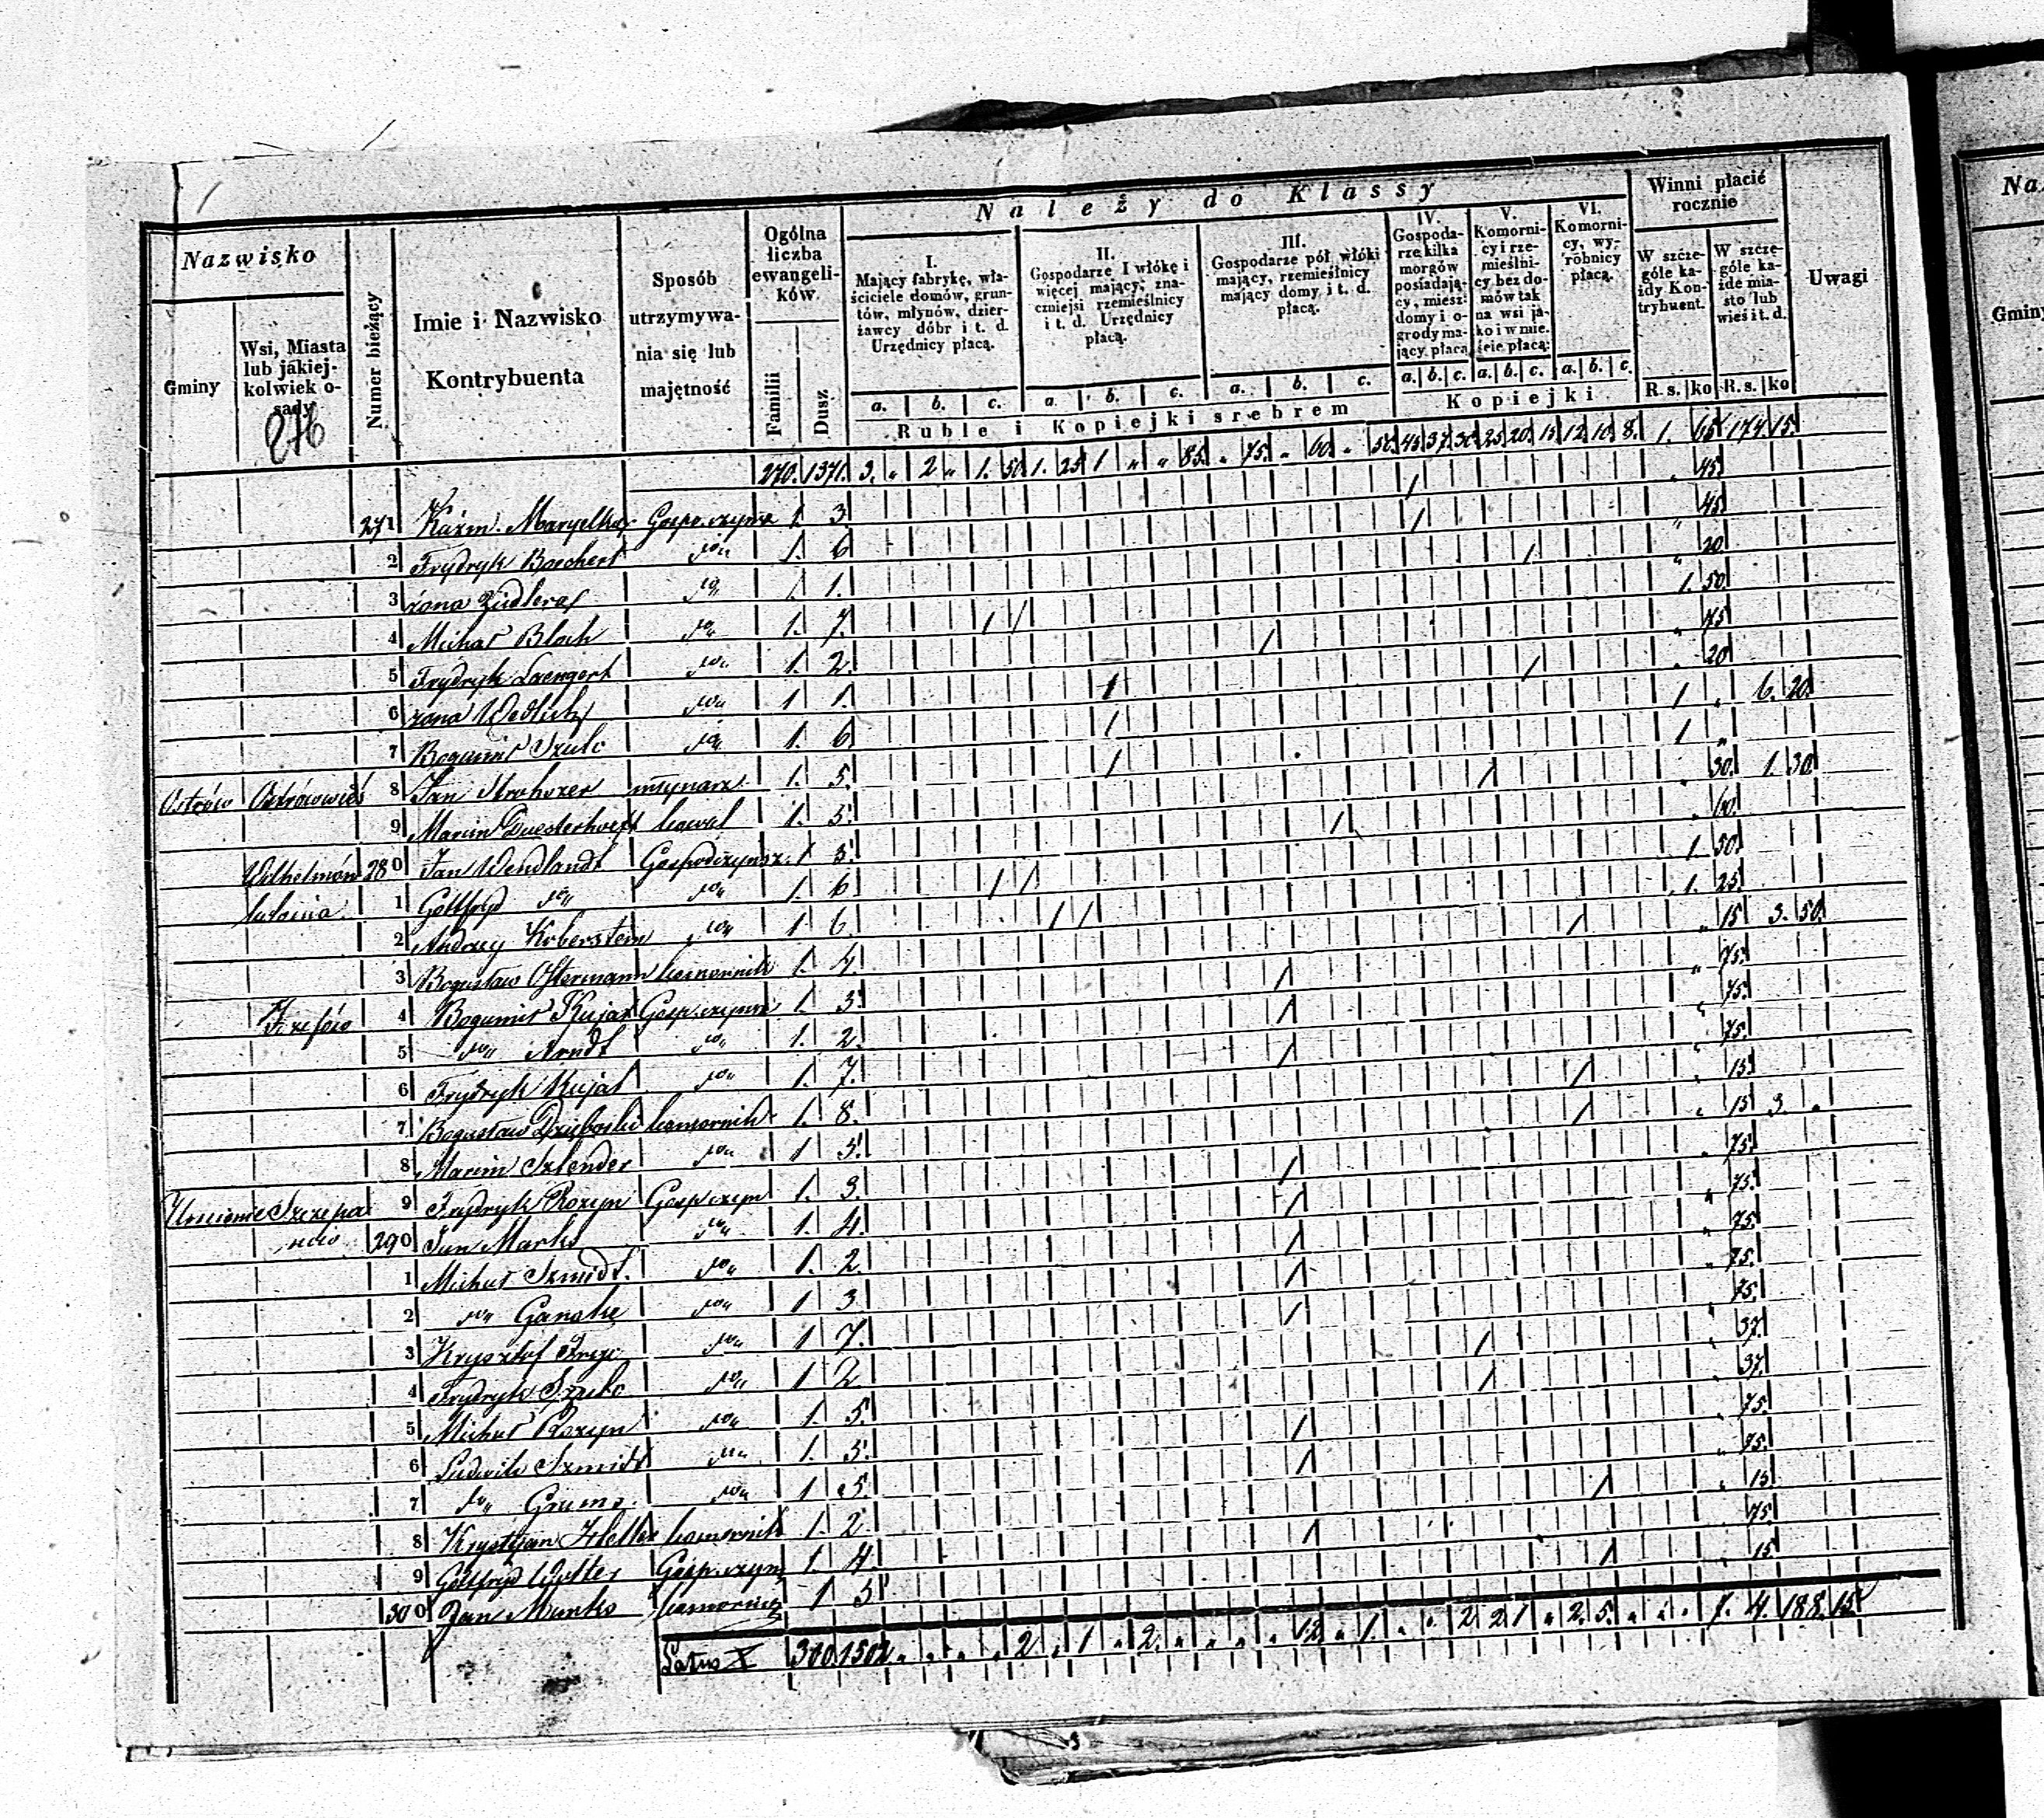 Należy do Klassy
Nazwisko
Gminy
Wsi, Miasta lub jakiejkolwiek osady
Numer bieżący
Imie i Nazwisko Kontrybuenta
Sposób utrzymywania się lub majętność
Ogólna liczba ewangelików
Familii
Dusz
I. Mający fabrykę, właściciele domów, gruntów, młynów, dzierżawcy dóbr i t. d. Urzędnicy płacą.
II. Gospodarze I włókę i więcej mający, znaczniejsi rzemieślnicy i t. d. Urzędnicy płacą.
III. Gospodarze pół włóki mający, rzemieślnicy mający domy i t. d. płacą.
IV. Gospodarze kilka morgów posiadający, miesz: domy i ogrody mający płacą
V. Komornicy i rzemieślnicy bez domów tak na wsi jako i w mieście płacą:
VI. Komornicy, wyrobnicy płacą.
Winni płacić rocznie
W szczególe każdy Kontrybuent.
W szczególe każde miasto lub wieś i t. d.
Uwagi
a. b. c. a. b. c. a. b. c. a. b. c. a. b. c. a. b. c. R. s. ko R. s. ko
Ruble i Kopiejki srebrem Kopiejki
276
270. 1371. 3. " 2 " 1. 50 1. 25 1 " " 85. " 75. " 60. " 50. 45 37. 30. 25 20. 15 12. 10. 8. 1. 65 174 15.
271 Kazm. Gosp. czynsz 1. 3. / " 45.
2 Frydryk Borchert 1. 6 / " 45
3 żona 1. 1. / " 20
4 Michał Bloch 1. 7. / / 1. 50.
5 Frydryk 1. 2. / " 75
6 żona 1 1. / " 20
7 Bogumił Szulc 1. 6 / 1 " 6. 20.
Ostrów 8 Jan młynarz 1. 5. / 1 "
9 Marcin Duesterhoeft kowal 1. 5. / " 30. 1. 30
Wilhelmów 280 Jan Wendlandt Gospod czynsz. 1 3. / " 60.
kolonia 1 Gottfryd 1. 6 / / 1. 50.
2 Andrzey Koberstein 1 6. / / 1. 25.
3 Bogusław Ostermann komornik 1. 4. / " 15 3. 50.
Józefów 4 Bogumił Kujat Gosp. czynsz 1. 3. / " 75.
5 Arndt 1. 2. / " 75.
6 Frydryk Kujat 1. 7. / " 75.
7 Bogusław komornik 1. 8. / " 15.
8 Marcin Szlender 1 5. / " 15 3. "
Szczepanow 9 Frydryk Rozyn Gosp czyn 1. 3. / " 75.
290 Jan Marks 1. 4. / " 75.
1 Michał Szmidt. 1. 2. / " 75.
2 Ganske 1 3 / " 75.
3 Krysztof 1 7. / " 75.
4 Frydryk Szulc 1 2 / " 37.
5 Michał Rozyn 1. 5. / " 37.
6 Ludwik Szmidt 1. 5. / " 75.
7 1 5. / " 75.
8 Krystyan komornik 1. 2 / " 15.
9 Gottfryd Wolter Gosp. czyn 1. 4. / " 75
300 Jan komornik 1 5 / " 15
Latus X 300 1502 " " " " 2 " 1 " 2. " " " " 12 " 1. " " 2 2 1 " 2. 5. " " " 7. 4. 188. 15
Na
Gminy